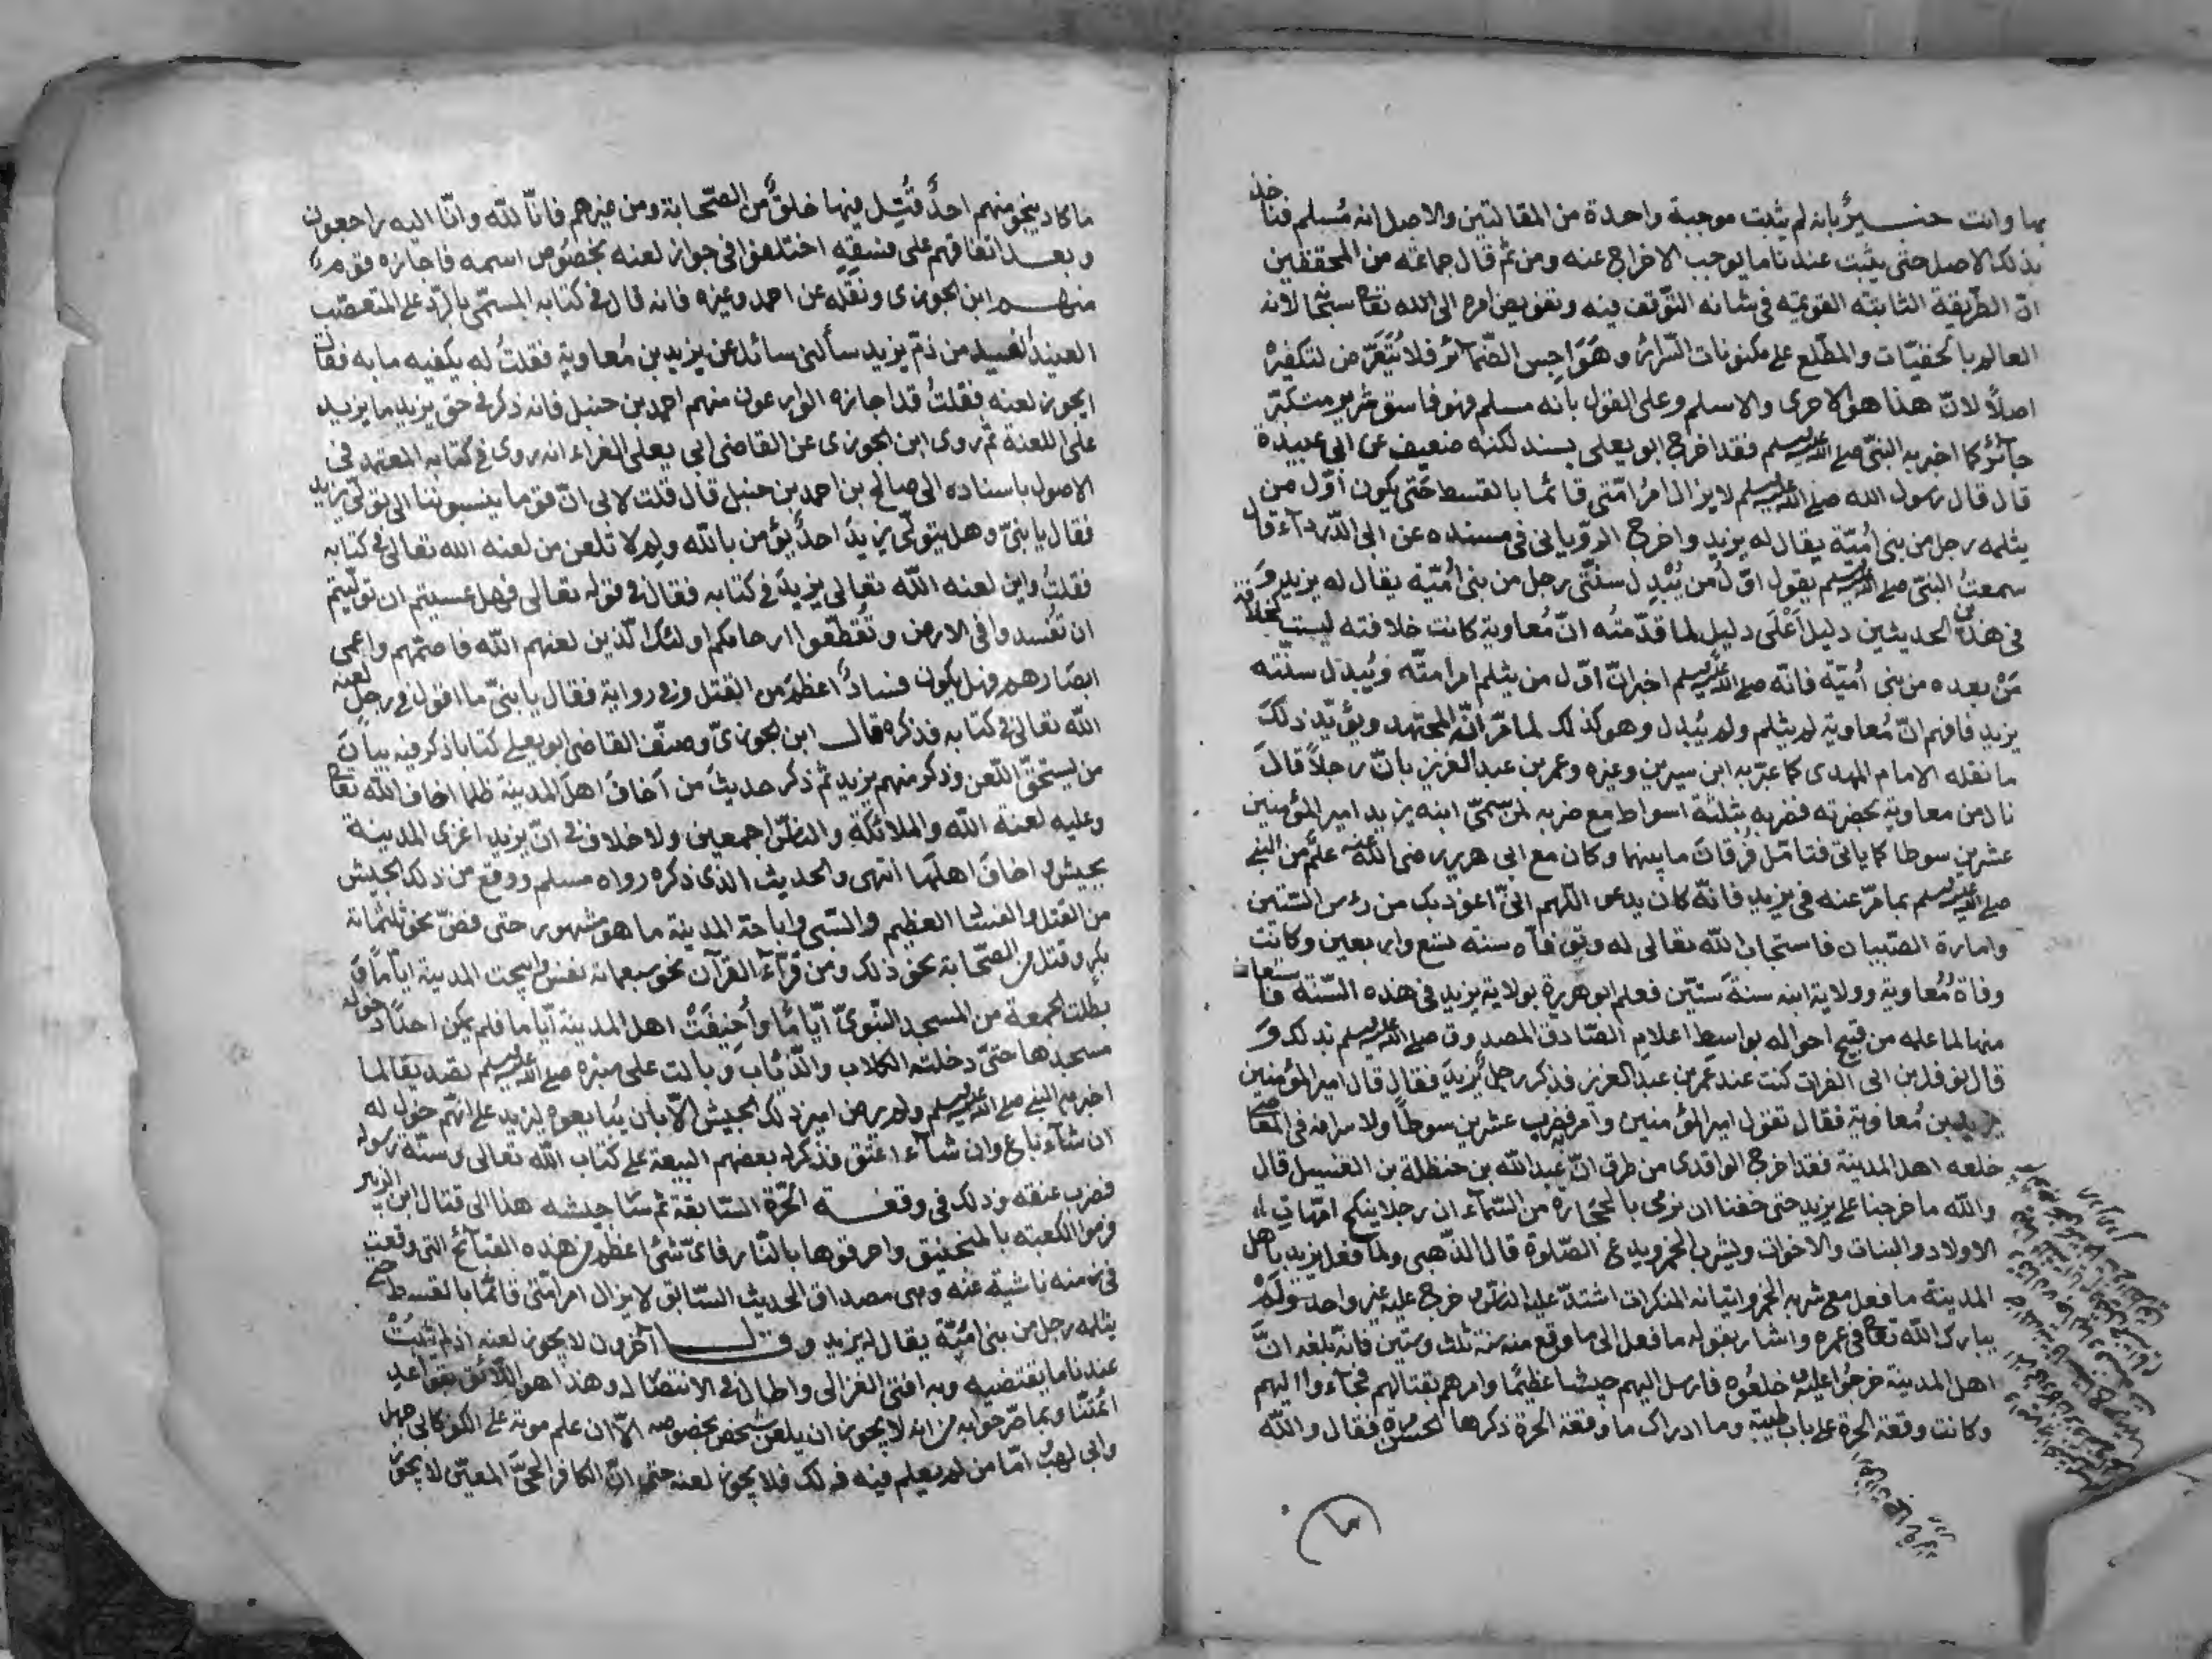 بها وانت خبير بانه لم يثبت موجبة واحدة من المقالتين والاصل انه مسلم فناخذ
بذلك الاصل حتى يثبت عندنا ما يوجب الاخراج عنه ومن ثم قال جماعة من المحققين
ان الطريقة الثابتة القويمة في شانه التوقف فيه وتفويض امره الى الله تعالى سبحانه لانه
العالم بالخفيات والمطلع على مكنونات السرائر وهواجس الضمائر فلا نتعرض لتكفيره
اصلا لان هذا هو الاحرى والاسلم وعلى القول بانه مسلم فهو فاسق شرير متكبر
جائر كما اخبر به النبي صلى الله عليه وسلم فقد اخرج ابو يعلى بسند لكنه ضعيف عن ابي عبيدة
قال قال رسول الله صلى الله عليه وسلم لا يزال امر امتي قائما بالقسط حتى يكون اول من
يثلمه رجل من بني امية يقال له يزيد واخرج الروياني في مسنده عن ابي الدرداء قال
سمعت النبي صلى الله عليه وسلم يقول اول من يبدل سنتي رجل من بني امية يقال له يزيد و
في هذين الحديثين دليل اعلى دليل لما قدمته ان معاوية كانت خلافته ليست كخلافة
من بعده من بني امية فانه صلى الله عليه وسلم اخبر ان اول من يثلم امر امته ويبدل سنته
يزيد فافهم ان معاوية لم يثلم ولم يبدل وهو كذلك لما مر انه المجتهد ويؤيد ذلك
ما نقله الامام المهدى كما عبر به ابن سيرين وغيره وعمر بن عبد العزيز بان رجلا قال
نال من معاوية بحضرته فضربه ثلثة اسواط مع ضربه لمن سمى ابنه يزيد امير المؤمنين
عشرين سوطا كما ياتى فتامل فرقان ما بينهما وكان مع ابي هريرة رضى الله عنه علم من النبي
صلى الله عليه وسلم بما مر عنه في يزيد فانه كان يدعو اللهم اني اعوذ بك من رءس الستين
وامارة الصبيان فاستجاب الله تعالى له وتوفاه سنة تسع واربعين وكانت
وفاة معاوية وولاية ابنه سنة ستين فعلم ابو هريرة بولاية يزيد في هذه السنة فاستعاذ
منها لما علمه من قبيح احواله بواسطة اعلام الصادق المصدوق صلى الله عليه وسلم بذلك و
قال نوفل بن ابي الفرات كنت عند عمر بن عبد العزيز فذكر رجل يزيد فقال قال امير المؤمنين
يزيد بن معاوية فقال تقول امير المؤمنين وامر فضرب عشرين سوطا ولاسرافه في المعاصي
خلعه اهل المدينة فقد اخرج الواقدى من طرق ان عبد الله بن حنظلة بن الغسيل قال
والله ما خرجنا على يزيد حتى خفنا ان نرمى بالحجارة من السماء ان رجلا ينكح امهات
الاولاد والبنات والاخوات ويشرب الخمر ويدع الصلوة قال الذهبى ولما فعل يزيد باهل
المدينة ما فعل مع شربه الخمر واتيانه المنكرات اشتد عليه الناس وخرج عليه غير واحد ولم
يبارك الله تعالى في عمره واشار بقوله ما فعل الى ما وقع منه سنة ثلث وستين فانه بلغه ان
اهل المدينة خرجوا عليه وخلعوه فارسل اليهم جيشا عظيما وامرهم بقتالهم فجاءوا اليهم
وكانت وقعة الحرة على باب طيبة وما ادراك ما وقعة الحرة ذكرها الحسن مرة فقال والله
ما كاد ينجو منهم احد قتل فيها خلق من الصحابة ومن غيرهم فانا لله وانا اليه راجعون
وبعد اتفاقهم على فسقه اختلفوا في جواز لعنه بخصوص اسمه فاجازه قوم
منهم ابن الجوزى ونقله عن احمد وغيره فانه قال في كتابه المسمى بالرد على المتعصب
العنيد من ذم يزيد سألنى سائل عن يزيد بن معاوية فقلت له يكفيه ما به فقال
ايجوز لعنه فقلت قد اجازه الوارعون منهم احمد بن حنبل فانه ذكر في حق يزيد ما يزيد
على اللعنة ثم روى ابن الجوزى عن القاضى ابي يعلى الفراء انه روى في كتابه المعتمد في
الاصول باسناده الى صالح بن احمد بن حنبل قال قلت لابي ان قوما ينسبوننا الى تولى يزيد
فقال يا بني وهل يتولى يزيد احد يؤمن بالله ولم لا تلعن من لعنه الله تعالى في كتابه
فقلت واين لعنه الله تعالى يزيد في كتابه فقال في قوله تعالى فهل عسيتم ان توليتم
ان تفسدوا في الارض وتقطعوا ارحامكم اولئك الذين لعنهم الله فاصمهم واعمى
ابصارهم فهل يكون فساد اعظم من القتل وفي رواية فقال يا بني ما اقول في رجل لعنه
الله تعالى في كتابه فذكره قال ابن الجوزى وصنف القاضى ابو يعلى كتابا ذكر فيه بيان
من يستحق اللعن وذكر منهم يزيد ثم ذكر حديث من اخاف اهل المدينة ظلما اخافه الله تعالى
وعليه لعنة الله والملائكة والناس اجمعين ولا خلاف في ان يزيد اغزى المدينة
بجيش واخاف اهلها انتهى والحديث الذى ذكره رواه مسلم ووقع من ذلك الجيش
من القتل والفساد العظيم والسبى واباحة المدينة ما هو مشهور حتى فض نحو ثلثمائة
بكر وقتل من الصحابة نحو ذلك ومن قراء القرآن نحو سبعمائة نفس وابيحت المدينة اياما و
بطلت الجمعة من المسجد النبوى اياما واخيفت اهل المدينة اياما فلم يمكن احدا دخول
مسجدها حتى دخلته الكلاب والذئاب وبالت على منبره صلى الله عليه وسلم تصديقا لما
اخبر به النبي صلى الله عليه وسلم ولم يرض امير ذلك الجيش الا بان يبايعوه ليزيد على انهم خول له
ان شاء باع وان شاء اعتق فذكر له بعضهم البيعة على كتاب الله تعالى وسنة رسوله
فضرب عنقه وذلك في وقعة الحرة السابقة ثم سار جيشه هذا الى قتال ابن الزبير
فرموا الكعبة بالمنجنيق واحرقوها بالنار فاى شئ اعظم من هذه القبائح التى وقعت
في زمنه ناشية عنه وهى مصداق الحديث السابق لا يزال امر امتي قائما بالقسط حتى
يثلمه رجل من بنى امية يقال له يزيد وقال آخرون لا يجوز لعنه اذ لم يثبت
عندنا ما يقتضيه وبه افتى الغزالى واطال في الانتصار له وهذا هو اللائق بقواعد
ائمتنا وبما صرحوا به من انه لا يجوز ان يلعن شخص بخصوصه الا ان علم موته على الكفر كابي جهل
وابي لهب اما من لم يعلم فيه ذلك فلا يجوز لعنه حتى ان الكافر الحي المعين لا يجوز